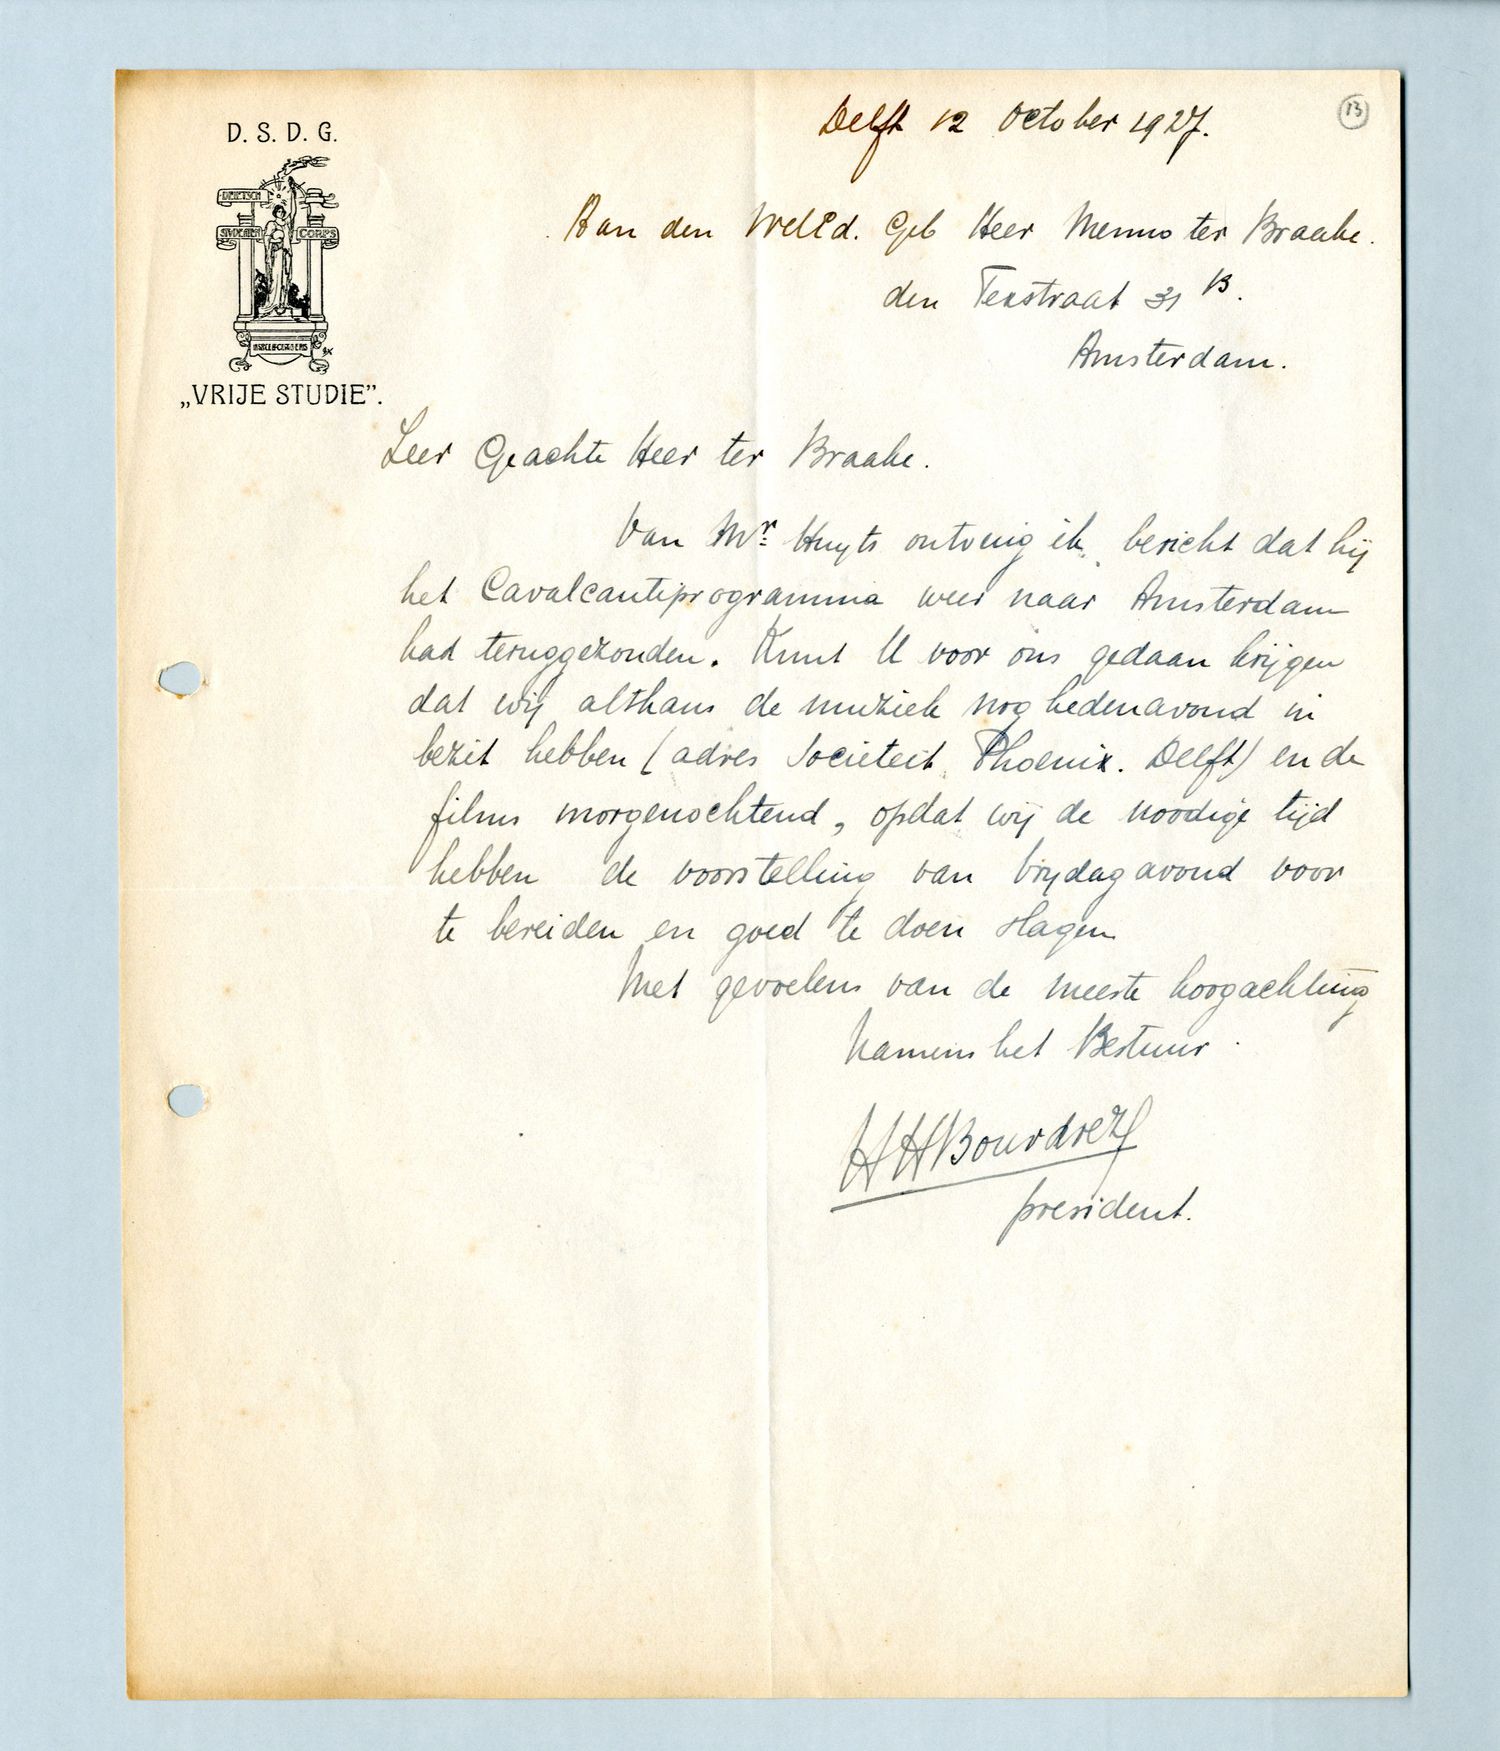 D. S. D. G.
STUDENTEN CORPS
„VRIJE STUDIE".
13
Delft 12 October 1927.
Aan den WelEd. Geb Heer Menno ter Braake.
den Texstraat 31 B.
Amsterdam.
Zeer Geachte Heer ter Braake.
Van Mr. Huyts ontving ik bericht dat hij
het Cavalcantiprogramma weer naar Amsterdam
had teruggezonden. Kunt U voor ons gedaan krijgen
dat wij althans de muziek nog hedenavond in
bezit hebben (adres Sociëteit Phoenix. Delft) en de
films morgenochtend, opdat wij de noodige tijd
hebben de voorstelling van Vrijdagavond voor
te bereiden en goed te doen slagen
Met gevoelens van de meeste hoogachting
Namens het Bestuur.
HHBourdrez
president.